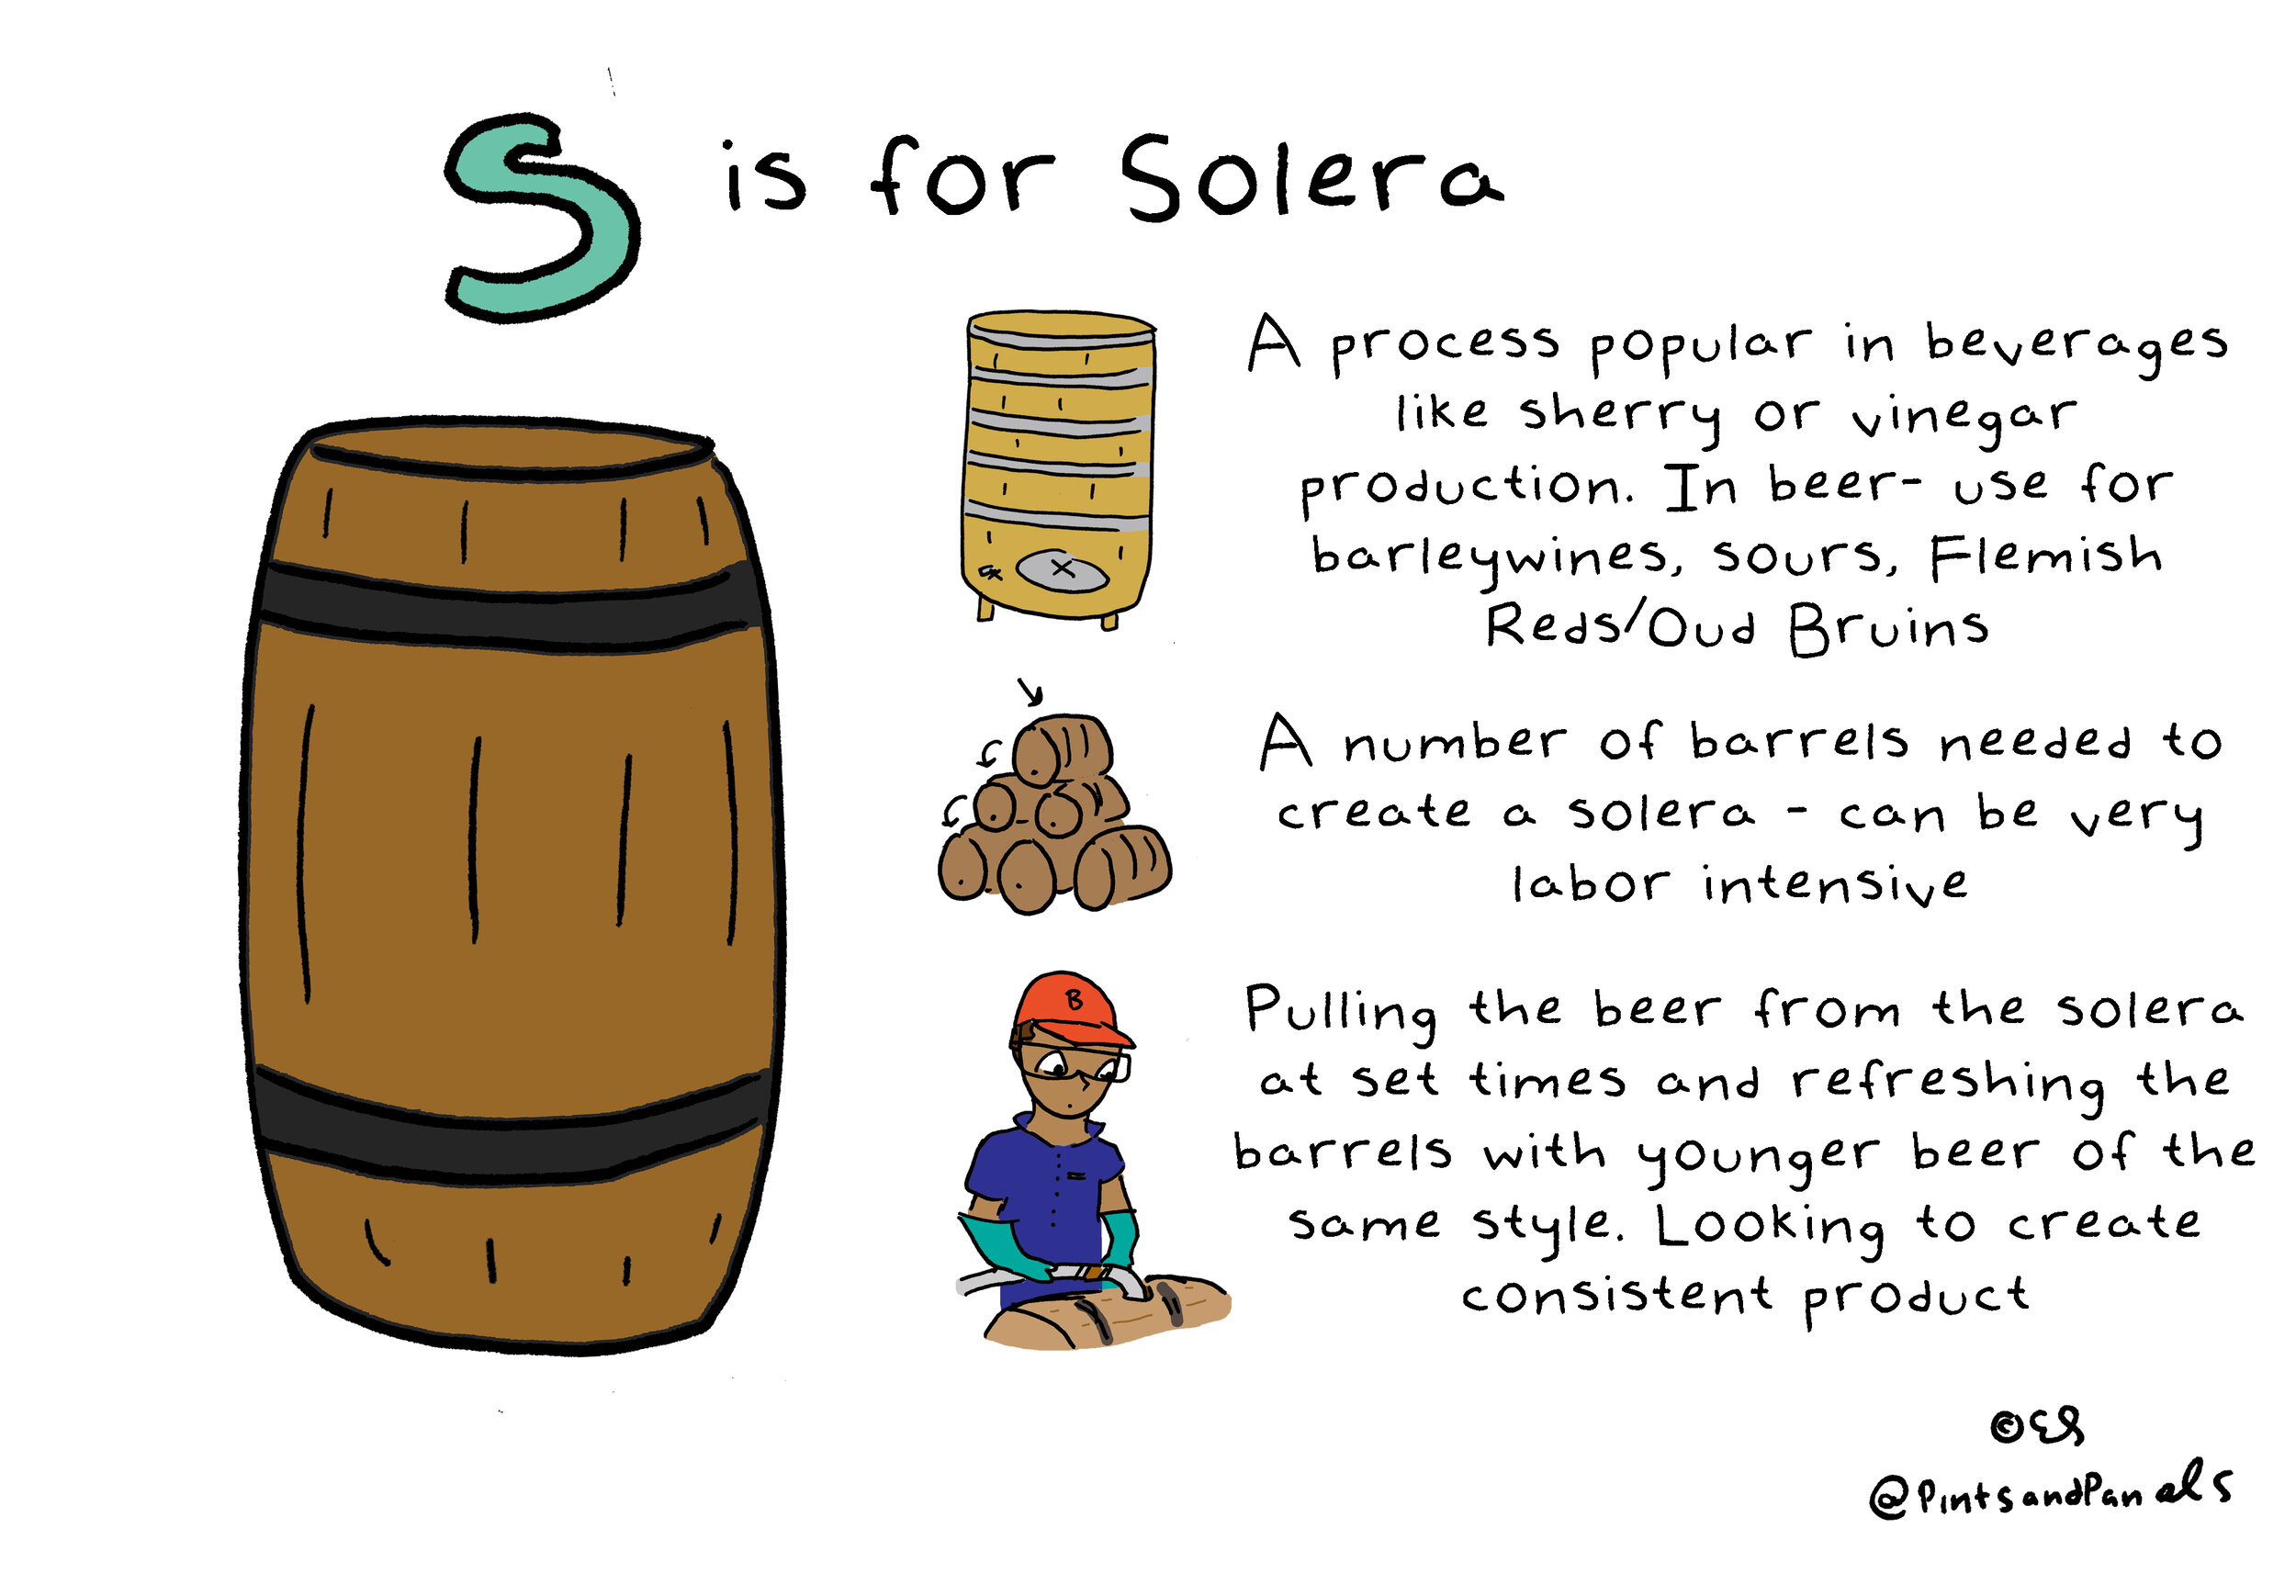 S is for Solera
A process popular in beverages
like sherry or vinegar
production. In beer- use for
barleywines, sours, Flemish
Reds/Oud Bruins
A number of barrels needed to
create a solera - can be very
labor intensive
B
Pulling the beer from the solera
at set times and refreshing the
barrels with younger beer of the
same style. Looking to create
consistent product
©ES
@PintsandPanels